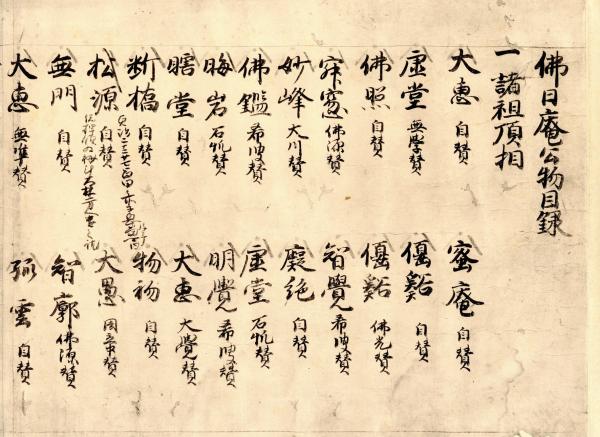 佛日庵公物目録
一 諸祖頂相
大恵 自賛 蜜庵 自賛
虚堂 無學賛 偃谿 自賛
佛照 自賛 偃谿 佛光賛
寂窓 佛源賛 智覺 希叟賛
妙峰 大川賛 癡絶 自賛
佛鑑 希叟賛 虚堂 石帆賛
晦岩 石帆賛 明覺 希叟賛
瞎堂 自賛 大恵 大覺賛
断橋 自賛 物初 自賛
松源 自賛 大愚
無門 自賛 智廓 佛源賛
大恵 無準賛 雲 自賛